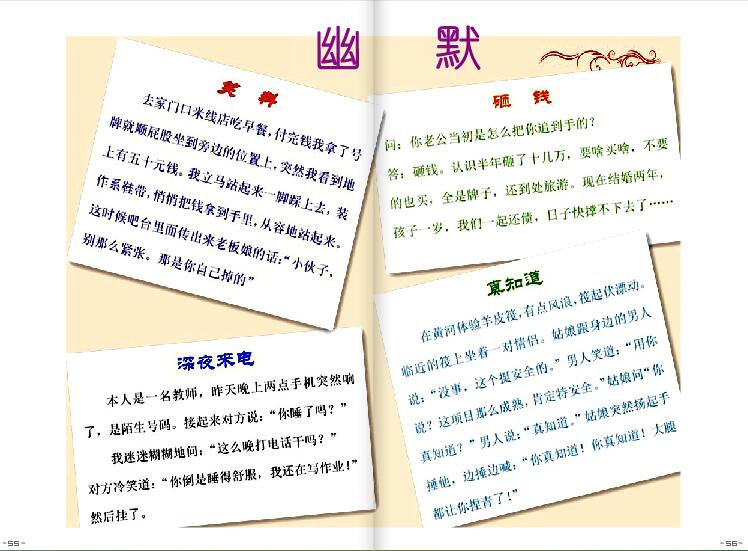 幽 默
笑 料
去家门口米线店吃早餐,付完钱我拿了号
牌就顺屁股坐到旁边的位置上,突然我看到地
上有五十元钱。我立马站起来一脚踩上去,装
作系鞋带,悄悄把钱拿到手里,从容地站起来。
这时候吧台里面传出来老板娘的话:“小伙子,
别那么紧张。那是你自己掉的”
深夜来电
本人是一名教师,昨天晚上两点手机突然响
了,是陌生号码。接起来对方说:“你睡了吗?”
我迷迷糊糊地问:“这么晚打电话干吗?”
对方冷笑道:“你倒是睡得舒服,我还在写作业!”
然后挂了。
-55-
砸 钱
问:你老公当初是怎么把你追到手的?
答:砸钱。认识半年砸了十几万,要啥买啥,不要
的也买,全是牌子,还到处旅游。现在结婚两年,
孩子一岁,我们一起还债,日子快撑不下去了……
真知道
在黄河体验羊皮筏,有点风浪,筏起伏漂动。
临近的筏上坐着一对情侣。姑娘跟身边的男人
说:“没事,这个挺安全的。”男人笑道:“用你
说?这项目那么成熟,肯定特安全。”姑娘问“你
真知道?”男人说:“真知道。”姑娘突然扬起手
捶他,边捶边喊:“你真知道!你真知道!大腿
都让你捏青了!”
-56-